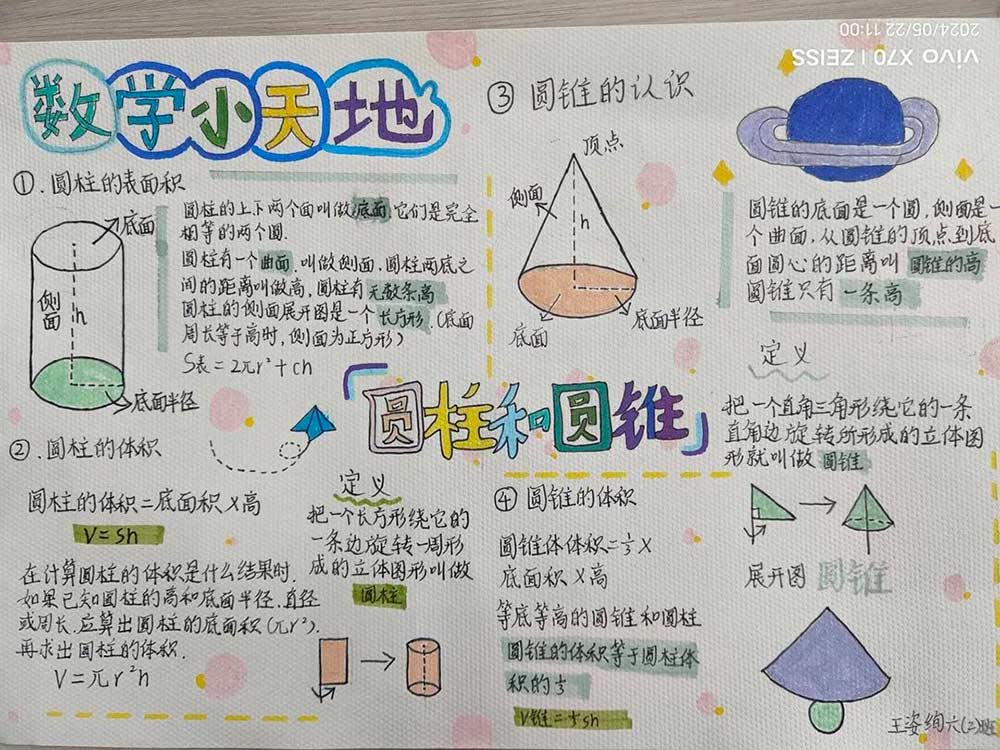 数学小天地
①.圆柱的表面积
底面
侧面
h
底面半径
圆柱的上下两个面叫做底面,它们是完全
相等的两个圆.
圆柱有一个曲面,叫做侧面,圆柱两底之
间的距离叫做高,圆柱有无数条高
圆柱的侧面展开图是一个长方形.(底面
周长等于高时,侧面为正方形)
S表=2πr²+ch
②.圆柱的体积
圆柱的体积=底面积×高
V=sh
在计算圆柱的体积是什么结果时.
如果已知圆柱的高和底面半径、直径
或周长.应算出圆柱的底面积(πr²).
再求出圆柱的体积.
V=πr²h
定义
把一个长方形绕它的
一条边旋转一周形
成的立体图形叫做
圆柱
圆柱和圆锥
③ 圆锥的认识
顶点
侧面
h
底面
底面半径
圆锥的底面是一个圆,侧面是一
个曲面,从圆锥的顶点到底
面圆心的距离叫圆锥的高
圆锥只有一条高
定义
把一个直角三角形绕它的一条
直角边旋转所形成的立体图
形就叫做圆锥
④ 圆锥的体积
圆锥体体积=1/3×
底面积×高
等底等高的圆锥和圆柱
圆锥的体积等于圆柱体
积的1/3
V锥=1/3sh
展开图 圆锥
王姿绚六(2)班
vivo X70 | ZEISS
2024/05/22 11:00